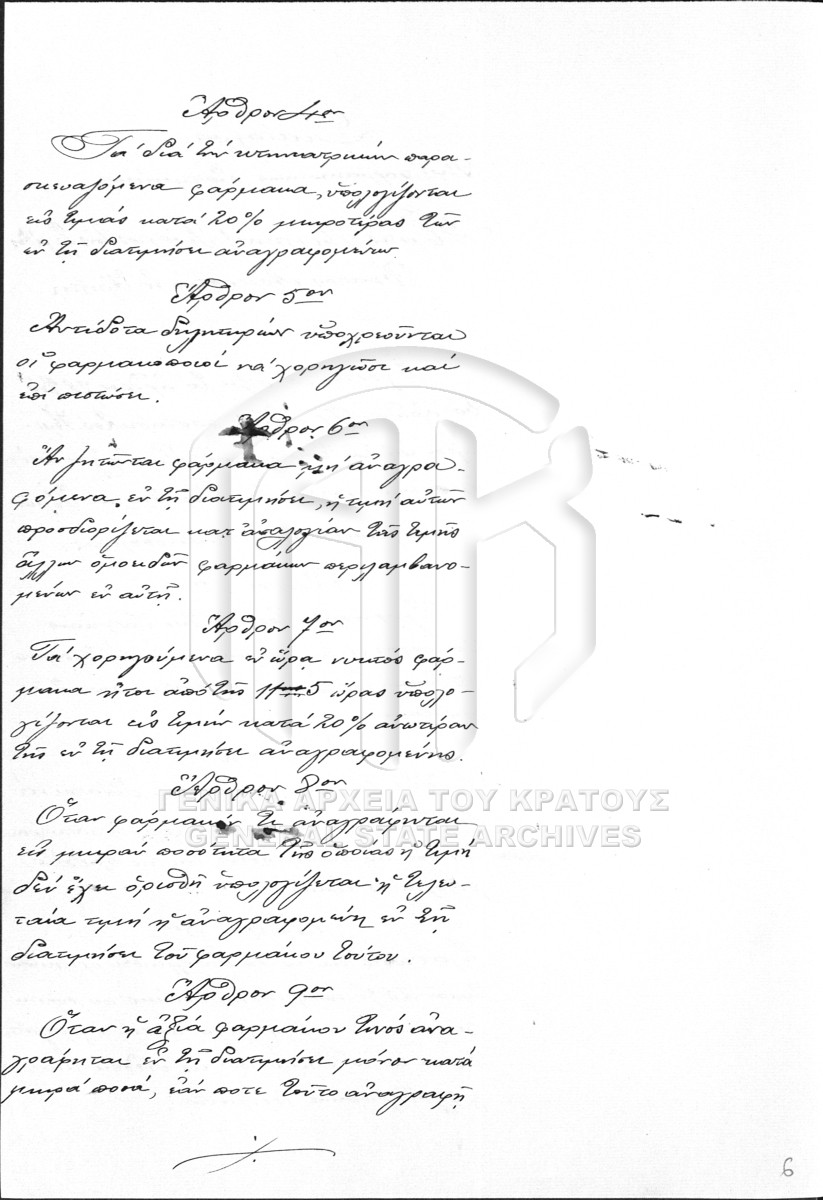 Ἄρθρον 4ον
Τὰ διὰ τὴν κτηνιατρικὴν παρα-
σκευαζόμενα φάρμακα, ὑπολογίζονται
εἰς τιμὰς κατὰ 20% μικροτέρας τῶν
ἐν τῇ διατιμήσει ἀναγραφομένων.
Ἄρθρον 5ον
Ἀντίδοτα δηλητηρίων ὑποχρεοῦνται
οἱ φαρμακοποιοὶ νὰ χορηγῶσι καὶ
ἐπὶ πιστώσει.
Ἄρθρον 6ον
Ἂν ζητῶνται φάρμακα μὴ ἀναγρα-
φόμενα ἐν τῇ διατιμήσει, ἡ τιμὴ αὐτῶν
προσδιορίζεται κατ' ἀναλογίαν τῆς τιμῆς
ἄλλων ὁμοειδῶν φαρμάκων περιλαμβανο-
μένων ἐν αὐτῇ.
Ἄρθρον 7ον
Τὰ χορηγούμενα ἐν ὥρᾳ νυκτὸς φάρ-
μακα ἤτοι ἀπὸ τῆς 11ης 5 ὥρας ὑπολο-
γίζονται εἰς τιμὴν κατὰ 20% ἀνωτέραν
τῆς ἐν τῇ διατιμήσει ἀναγραφομένης.
Ἄρθρον 8ον
ΓΕΝΙΚΑ ΑΡΧΕΙΑ ΤΟΥ ΚΡΑΤΟΥΣ
Ὅταν φάρμακόν τι ἀναγράφηται
GENERAL STATE ARCHIVES
εἰς μικρὰν ποσότητα τῆς ὁποίας ἡ τιμὴ
δὲν ἔχει ὁρισθῆ ὑπολογίζεται ἡ τελευ-
ταία τιμὴ ἡ ἀναγραφομένη ἐν τῇ
διατιμήσει τοῦ φαρμάκου τούτου.
Ἄρθρον 9ον
Ὅταν ἡ ἀξία φαρμάκου τινὸς ἀνα-
γράφηται ἐν τῇ διατιμήσει μόνον κατὰ
μικρὰ ποσά, ἐάν ποτε τοῦτο ἀναγραφῇ
6